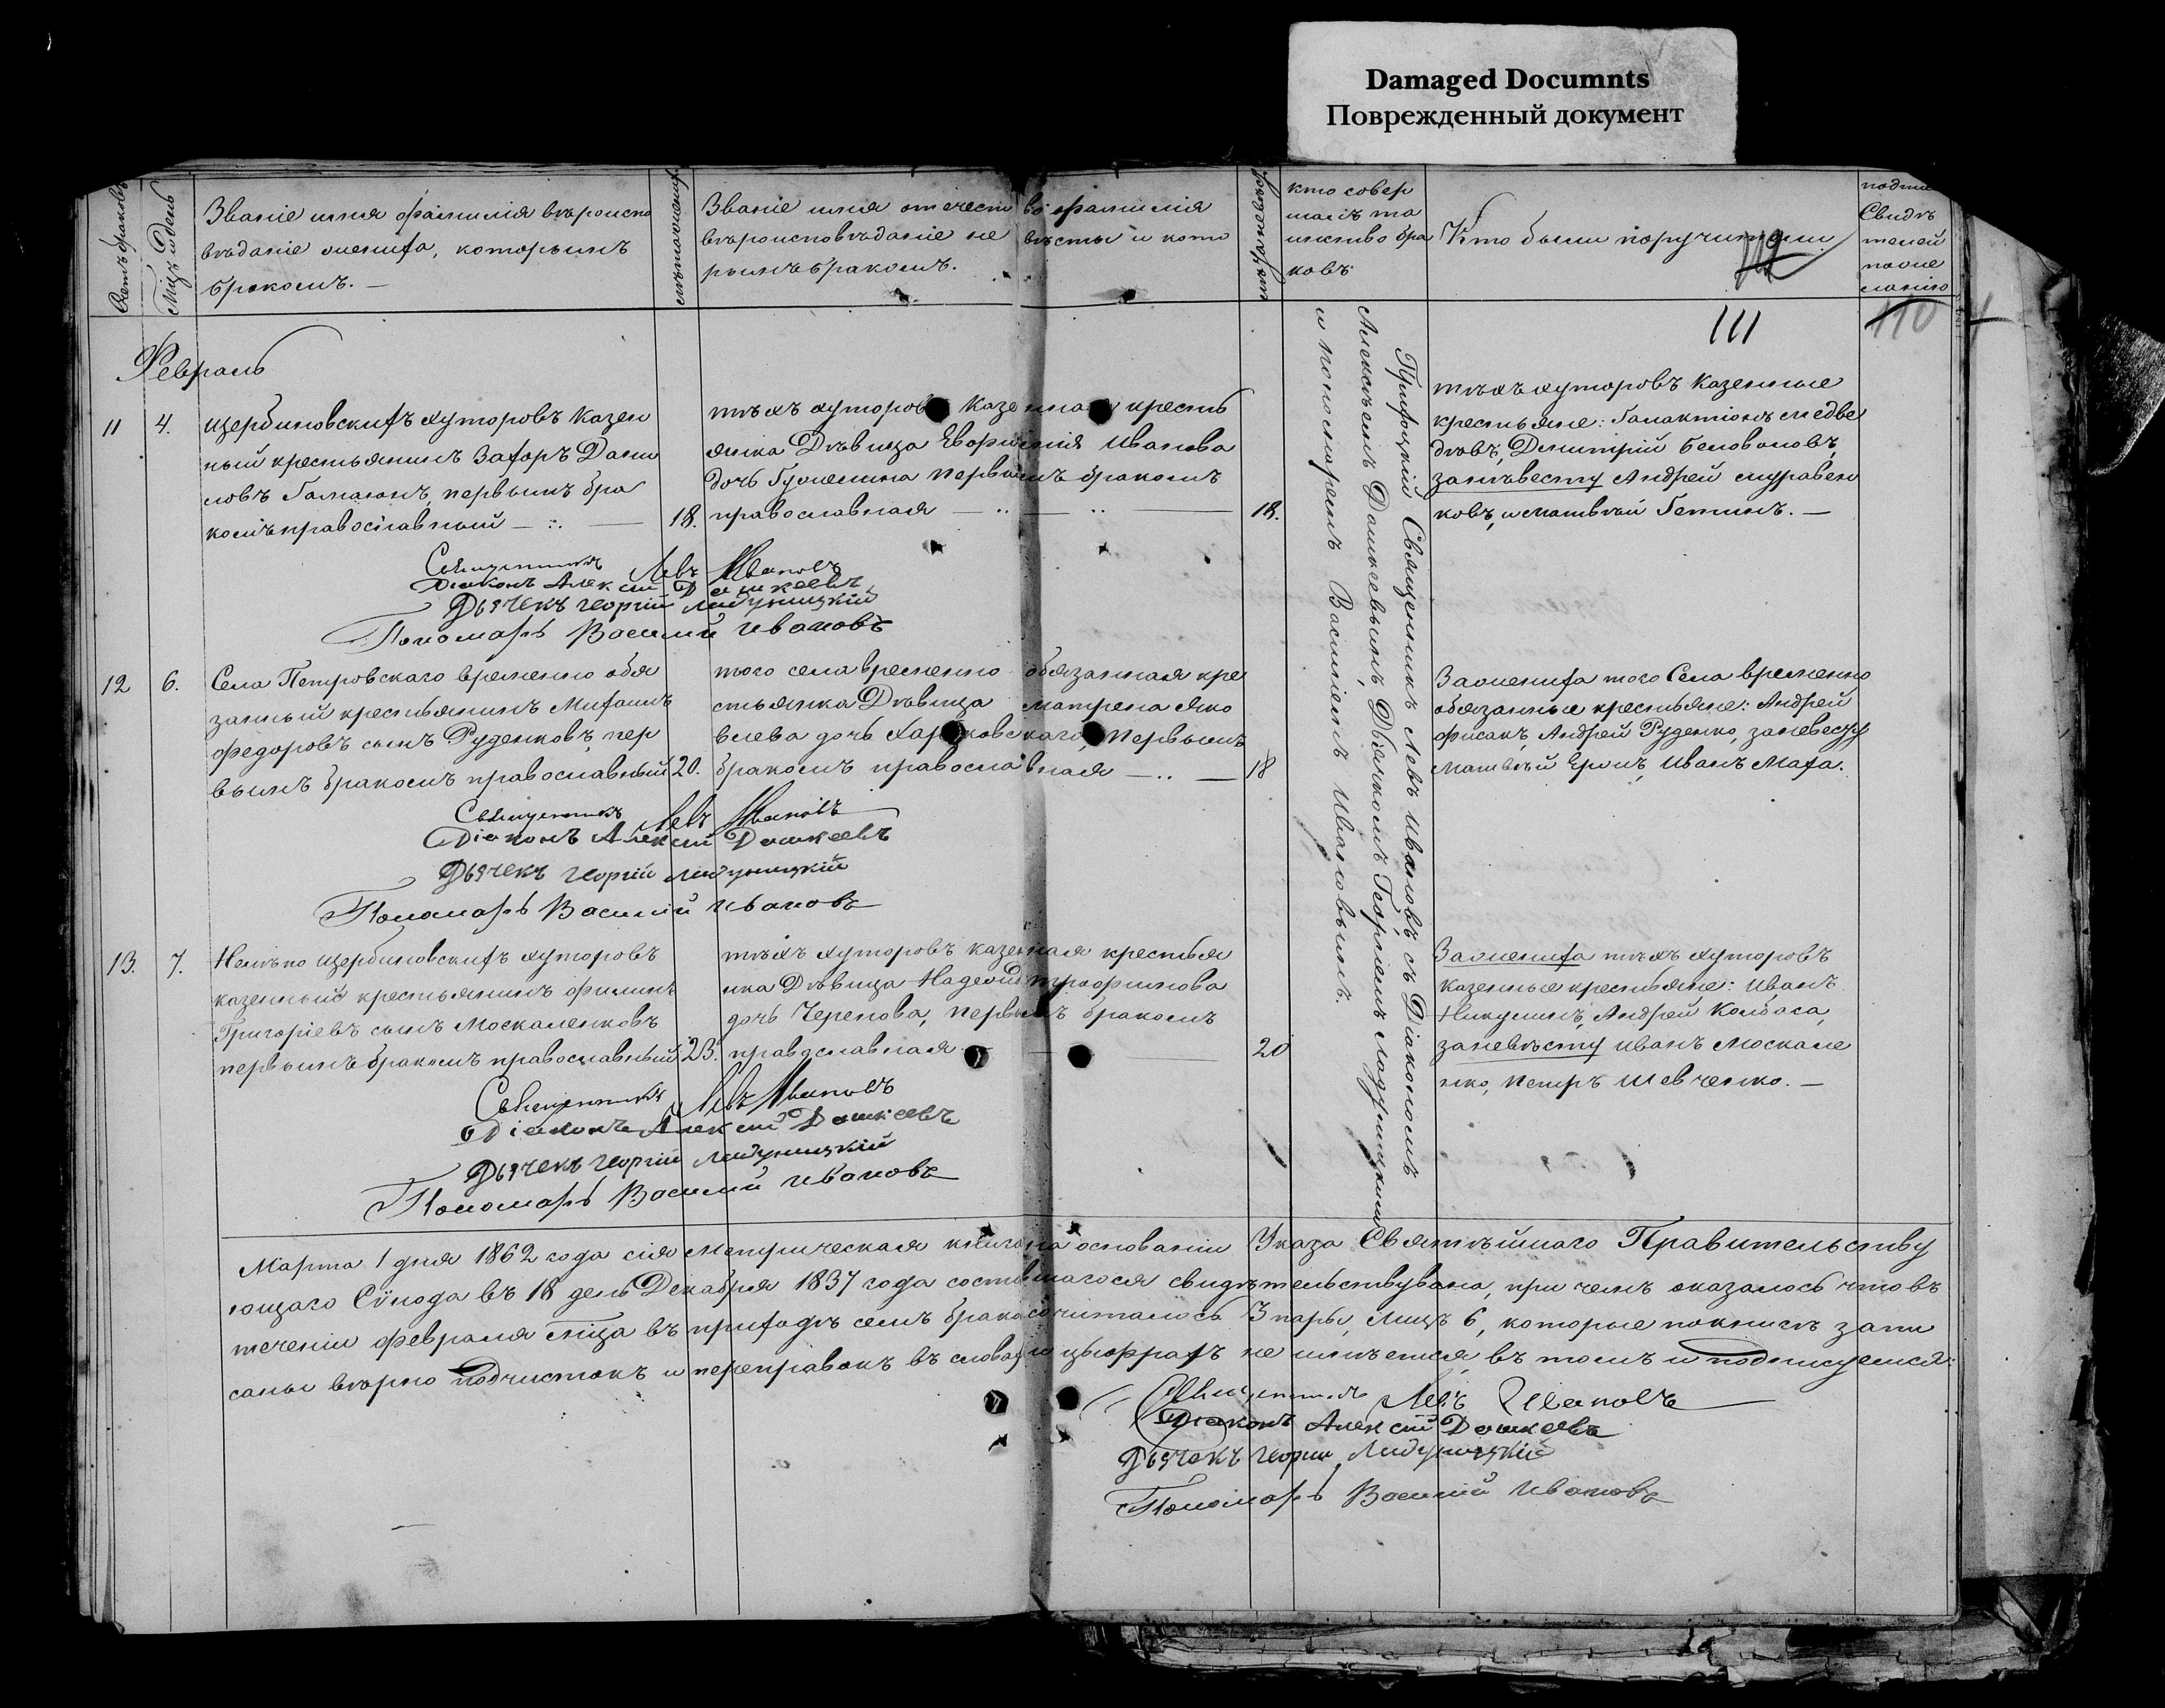 Damaged Documnts
Поврежденный документ
Счетъ браковъ
Мцъ и день
Званіе имя фамилія вѣроиспо
вѣданіе жениха, которымъ
бракомъ. —
лѣта жениха
Званіе имя отечество фамилія
вѣроисповѣданіе невѣсты и кото
рымъ бракомъ.
лѣта невѣсты
кто совер
шалъ та
инство бра
ковъ
Кто были поручители
Свидѣ
телей
110
111
Февраль
11
4.
щербиновскихъ хуторовъ казен
ный крестьянинъ Захаръ Дани
ловъ Гамаюнъ, первымъ бра
комъ православный — 18.
тѣхъ хуторовъ казенная кресть
янка Дѣвица Евфимія Иванова
дочь первымъ бракомъ
православная — 18.
тѣхъ хуторовъ казенные
крестьяне: Галактіонъ медве
дѣвъ, Димитрій Беловоловъ,
заневесту Андрей муравен
ковъ, и матвѣй Гетинъ. —
Священникъ Левъ Ивановъ
Діаконъ Алексій Дашкеевъ
Дьячекъ Георгій
Пономарь Василій Ивановъ
12
6.
Села Петровскаго временно обя
занный крестьянинъ Митофанъ
федоровъ сынъ Руденковъ, пер
вымъ бракомъ православный 20.
того села временно обязанная кре
стьянка Дѣвица матрена яко
влева дочь Харьковскаго, Первымъ
бракомъ православная — 18
Зажениха того Села временно
обязанные крестьяне: Андрей
фисакъ, Андрей Руденко, заневесту
Матвѣй Ерошъ, Иванъ Маха.
Священникъ Левъ Ивановъ
Діаконъ Алексій Дашкеевъ
Дьячекъ Георгій
Пономарь Василій Ивановъ
13.
7.
щербиновскихъ хуторовъ
казенный крестьянинъ филипъ
Григоріевъ сынъ Москаленковъ
первымъ бракомъ православный 23.
тѣхъ хуторовъ казенная крестья
нка Дѣвица Надежда трофимова
дочь Черепова, первымъ бракомъ
православная — 20
Зажениха тѣхъ хуторовъ
казенные крестьяне: Иванъ
Никулинъ, Андрей Колбаса,
заневѣсту иванъ Москале
нко, Петръ Шевченко. —
Священникъ Левъ Ивановъ
Діаконъ Алексій Дашкеевъ
Дьячекъ Георгій
Пономарь Василій Ивановъ
Священникъ Левъ ивановъ съ Діакономъ
Алексѣемъ Дашкевымъ, Дьячкомъ Георгіемъ
и пономаремъ Василіемъ Ивановымъ.
Марта 1 дня 1862 года сія Метрическая книга на основаніи Указа Святѣйшаго Правительству
ющаго Сѵнода въ 18 день Декабря 1837 года состоявшагося свидѣтельствувана, при чемъ оказалось что въ
теченіи февраля мѣца въ приходѣ семъ бракосочиталось 3 пары, лицъ 6, которые покнигѣ запи
саны вѣрно подчистокъ и переправокъ въ словахъ и цыфрахъ не имѣется, въ томъ и подписуемся:
Священникъ Левъ Ивановъ
Діаконъ Алексій Дашкеевъ
Дьячекъ Георгій
Пономарь Василій Ивановъ